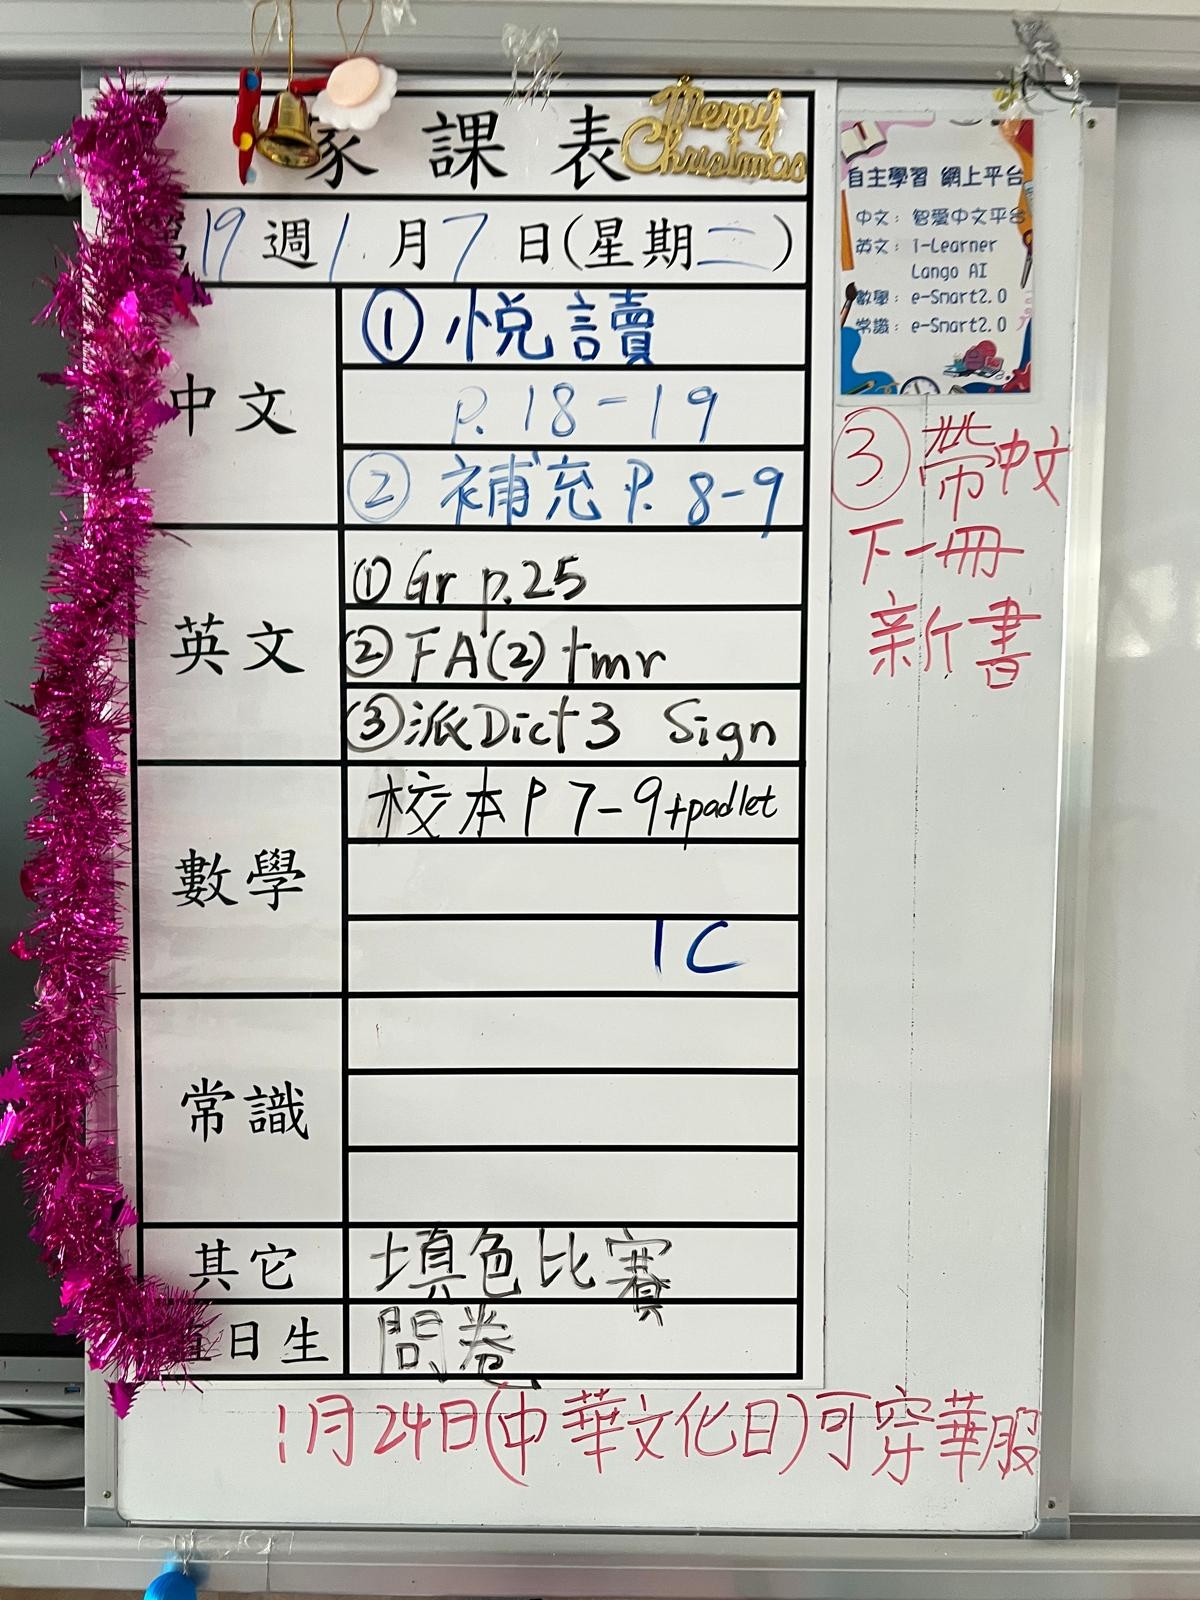 家課表
Merry
Christmas
第19週1月7日(星期二)
中文
①悅讀
p.18-19
②補充P.8-9
英文
①Gr p.25
②FA(2) tmr
③派Dict3 Sign
數學
校本P7-9+padlet
1C
常識
其它
填色比賽
日生
問卷
1月24日(中華文化日)可穿華服
自主學習 網上平台
中文: 智愛中文平台
英文: i-Learner
Lango AI
數學: e-Smart2.0
常識: e-Smart2.0
③帶中文
下一冊
新書